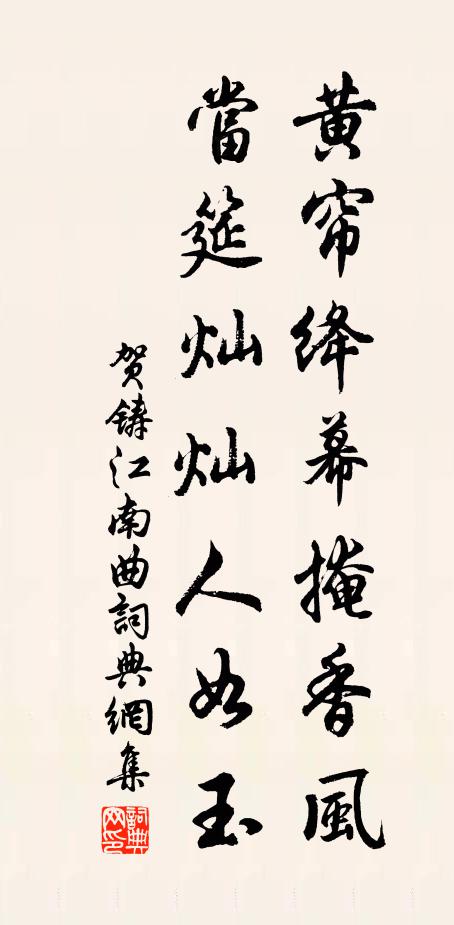 黄帘绛幕掩香風
當筵灿灿人如玉
贺铸江南曲詞典網集
詞典网印